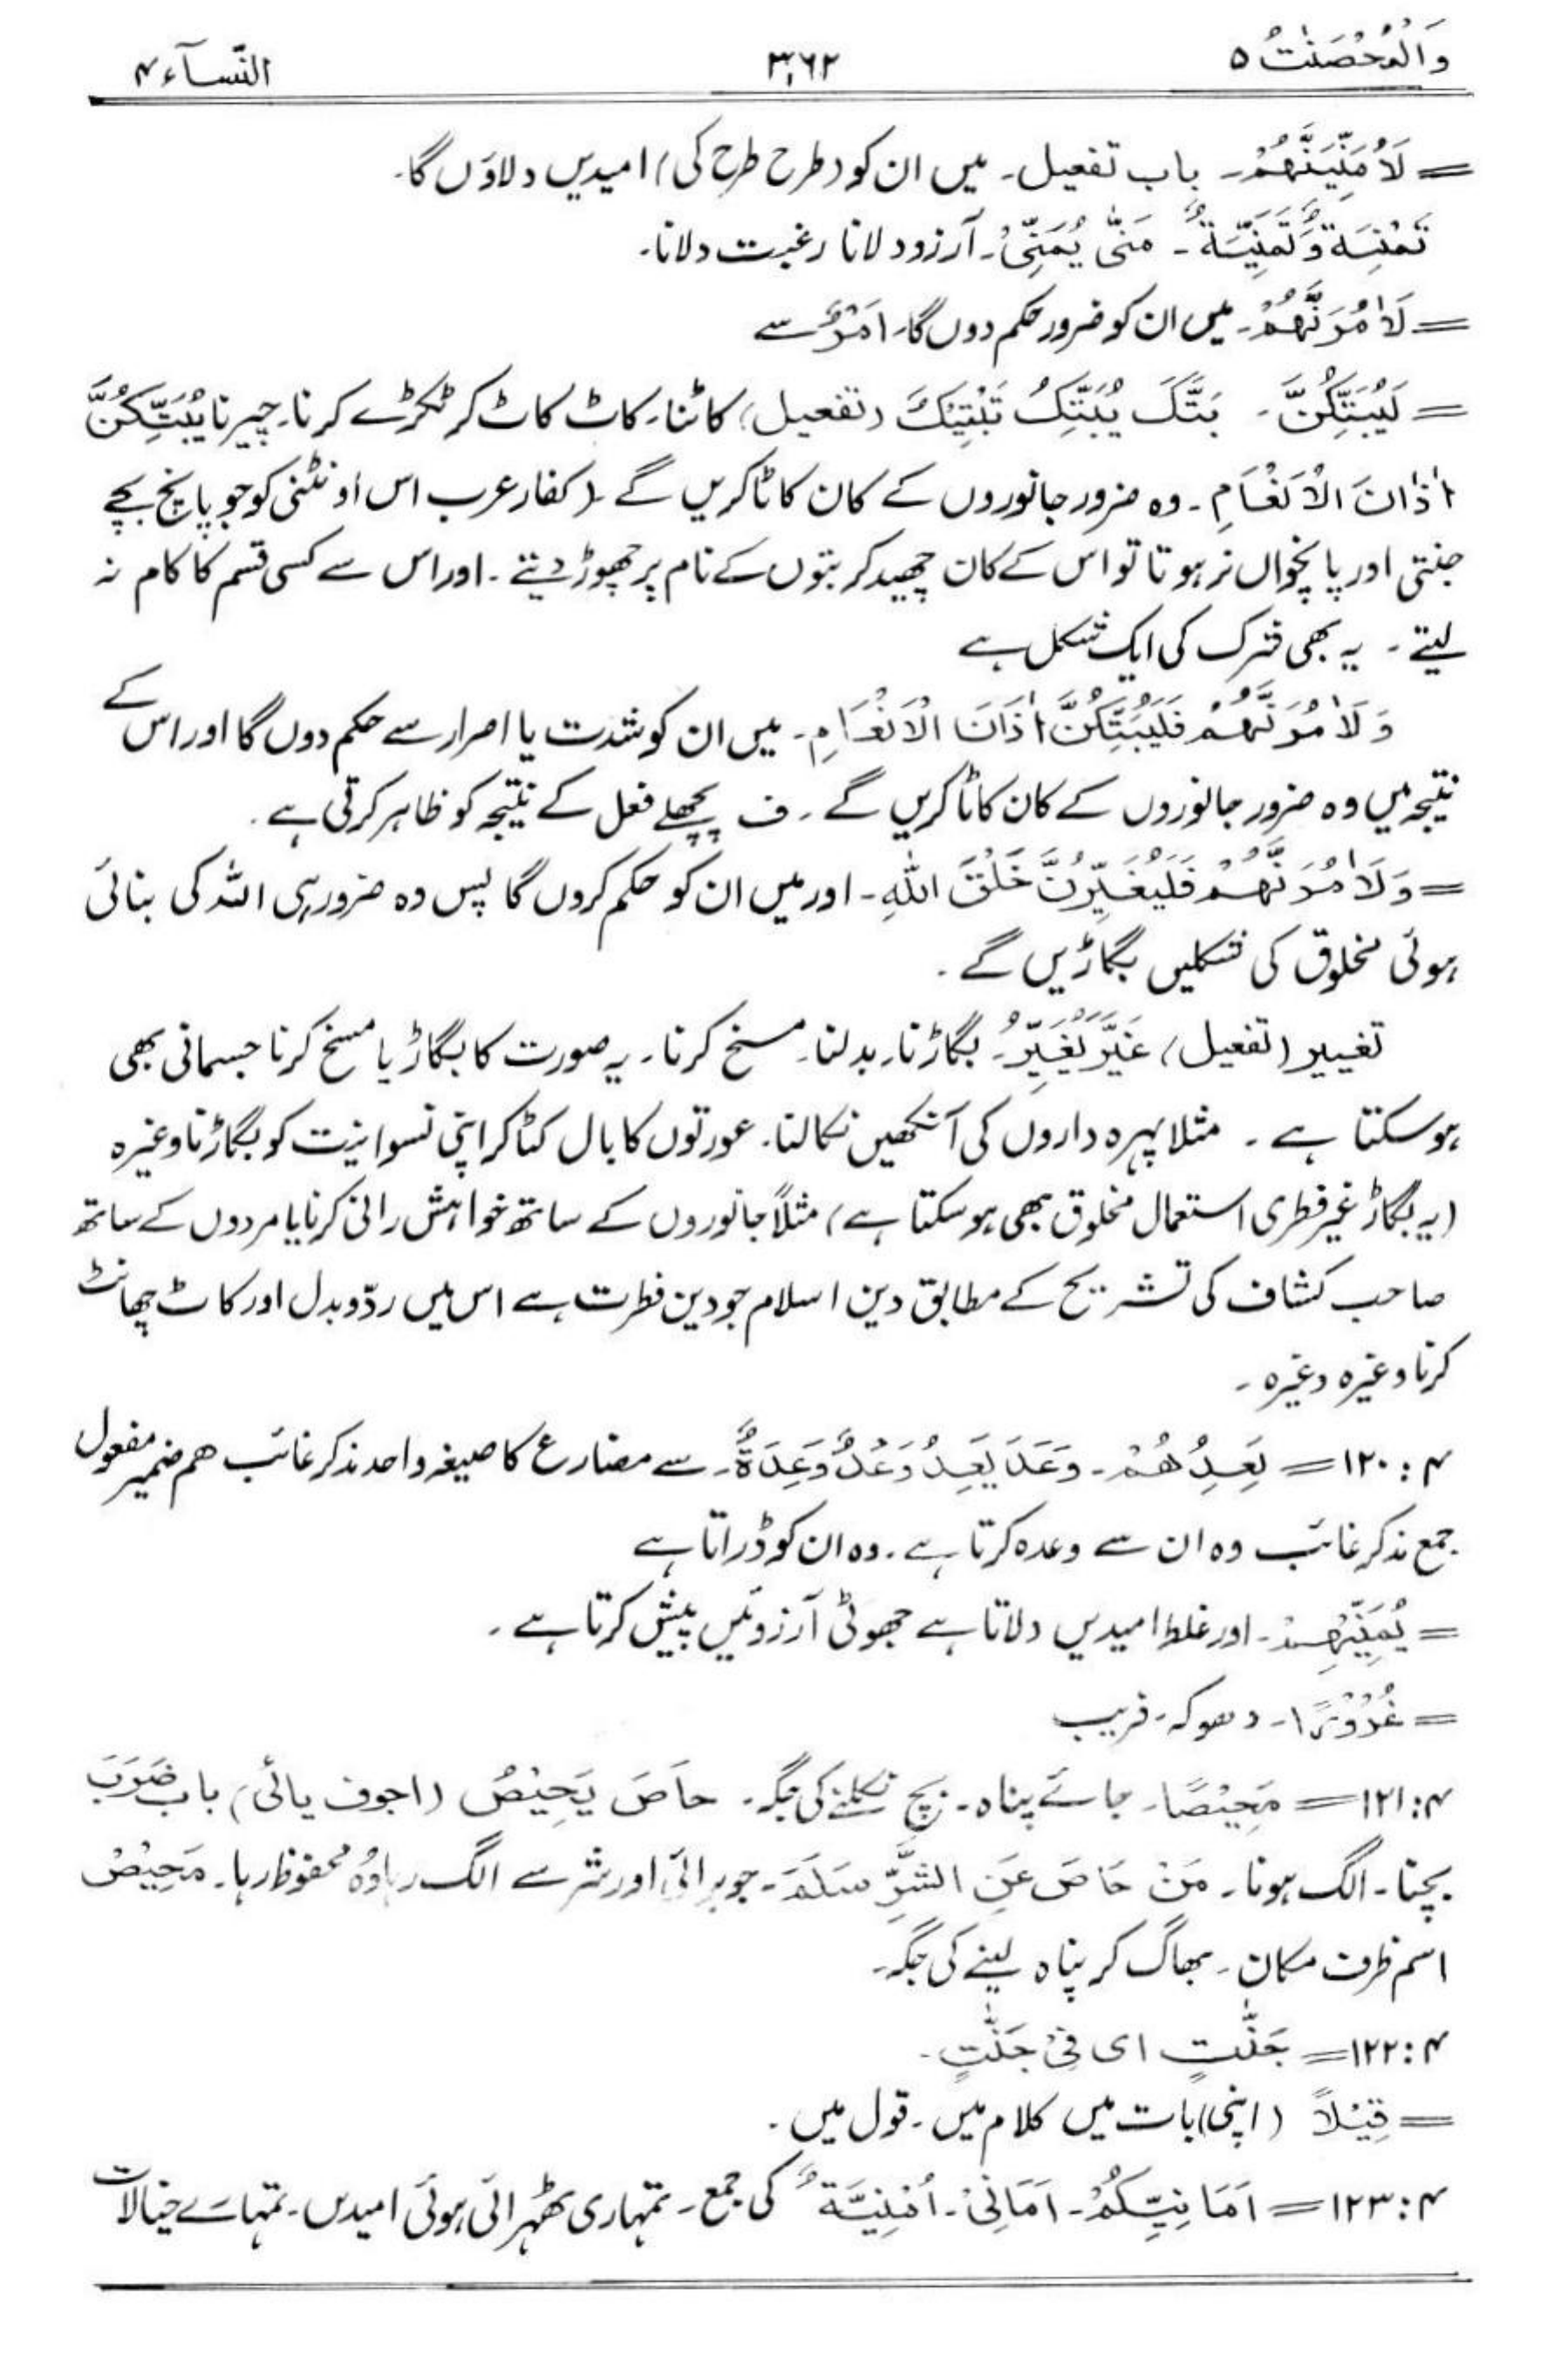 وَالْمُحْصَنٰتُ ۵ ۳۶۲ النّسآء ۴
= لَاُمَنِّیَنَّھُمْ۔ باب تفعیل۔ میں ان کو (طرح طرح کی) امیدیں دلاؤں گا۔
تَمْنِیَۃٌ وَّتَمَنِیَّۃٌ۔ مَنّٰی یُمَنِّیْ۔ آرزو دلانا رغبت دلانا۔
= لَاٰمُرَنَّھُمْ۔ میں ان کو ضرور حکم دوں گا۔ اَمْرٌ سے
= لَیُبَتِّکُنَّ۔ بَتَّکَ یُبَتِّکُ تَبْتِیْکَ (تفعیل) کاٹنا۔ کاٹ کاٹ کر ٹکڑے کرنا۔ چیرنا یُبَتِّکُنَّ
اٰذَانَ الْاَنْعَامِ۔ وہ ضرور جانوروں کے کان کاٹا کریں گے۔ (کفار عرب اس اونٹنی کو جو پانچ بچے
جنتی اور پانچواں نر ہوتا تو اس کے کان چھید کر بتوں کے نام پر چھوڑ دیتے۔ اور اس سے کسی قسم کا کام نہ
لیتے۔ یہ بھی شرک کی ایک شکل ہے
وَلَاٰمُرَنَّھُمْ فَلَیُبَتِّکُنَّ اٰذَانَ الْاَنْعَامِ۔ میں ان کو شدت یا اصرار سے حکم دوں گا اور اس کے
نتیجہ میں وہ ضرور جانوروں کے کان کاٹا کریں گے۔ ف پچھلے فعل کے نتیجہ کو ظاہر کرتی ہے۔
= وَلَاٰمُرَنَّھُمْ فَلَیُغَیِّرُنَّ خَلْقَ اللّٰہِ۔ اور میں ان کو حکم کروں گا پس وہ ضرور ہی اللہ کی بنائی
ہوئی مخلوق کی شکلیں بگاڑیں گے۔
تغییر (تفعیل) غَیَّرَ یُغَیِّرُ۔ بگاڑنا۔ بدلنا۔ مسخ کرنا۔ یہ صورت کا بگاڑ یا مسخ کرنا جسمانی بھی
ہو سکتا ہے۔ مثلا پہرہ داروں کی آنکھیں نکالنا۔ عورتوں کا بال کٹا کر اپنی نسوانیت کو بگاڑنا وغیرہ
(یہ بگاڑ غیر فطری استعمال مخلوق بھی ہو سکتا ہے) مثلاً جانوروں کے ساتھ خواہش رانی کرنا یا مردوں کے ساتھ
صاحب کشاف کی تشریح کے مطابق دین اسلام جو دین فطرت ہے اس میں ردّ و بدل اور کاٹ چھانٹ
کرنا وغیرہ وغیرہ۔
۴: ۱۲۰ = یَعِدُھُمْ۔ وَعَدَ یَعِدُ وَعْدٌ وَعِدَۃٌ۔ سے مضارع کا صیغہ واحد مذکر غائب ھم ضمیر مفعول
جمع مذکر غائب وہ ان سے وعدہ کرتا ہے۔ وہ ان کو ڈراتا ہے
= یُمَنِّیْھِمْ۔ اور غلط امیدیں دلاتا ہے جھوٹی آرزوئیں پیش کرتا ہے۔
= غُرُوْرًا۔ دھوکہ۔ فریب
۴: ۱۲۱ = مَحِیْصًا۔ جائے پناہ۔ بچ نکلنے کی جگہ۔ حَاصَ یَحِیْصُ (اجوف یائی) باب ضَرَبَ
بچنا۔ الگ ہونا۔ مَنْ حَاصَ عَنِ الشَّرِّ سَلَمَ۔ جو برائی اور شر سے الگ رہا وُہ محفوظ رہا۔ مَحِیْصٌ
اسم ظرف مکان۔ بھاگ کر پناہ لینے کی جگہ۔
۴: ۱۲۲ = جَنّٰتٍ ای فِیْ جَنّٰتٍ۔
= قِیْلًا (اپنی) بات میں کلام میں۔ قول میں۔
۴: ۱۲۳ = اَمَانِیِّکُمْ۔ اَمَانِیْ۔ اُمْنِیَّۃٌ کی جمع۔ تمہاری ٹھہرائی ہوئی امیدیں۔ تمہارے خیالات